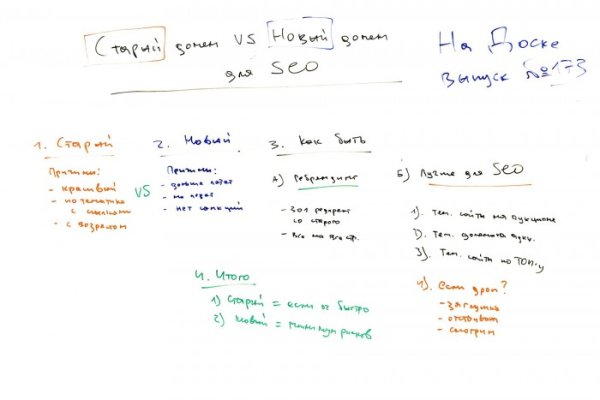 Старый домен VS Новый домен
для SEO
На Доске
выпуск №173
1. Старый
Причины:
- красивый
- по тематике
с ссылками
- с возрастом
VS
2. Новый
Причины:
- дольше
- нет санкций
3. Как быть
А) Ребрендинг
- 301 редирект
со старого
- Все на все стр.
Б) Лучше для SEO
1). Тем. сайты на аукционе
2). Тем. домена аукц.
3). Тем. сайты по ТОП-у
4). Если дроп?
- заглушка
- отстаивать
- смотрим
4. Итого
1) Старый = если оч быстро
2) Новый = минимум рисков